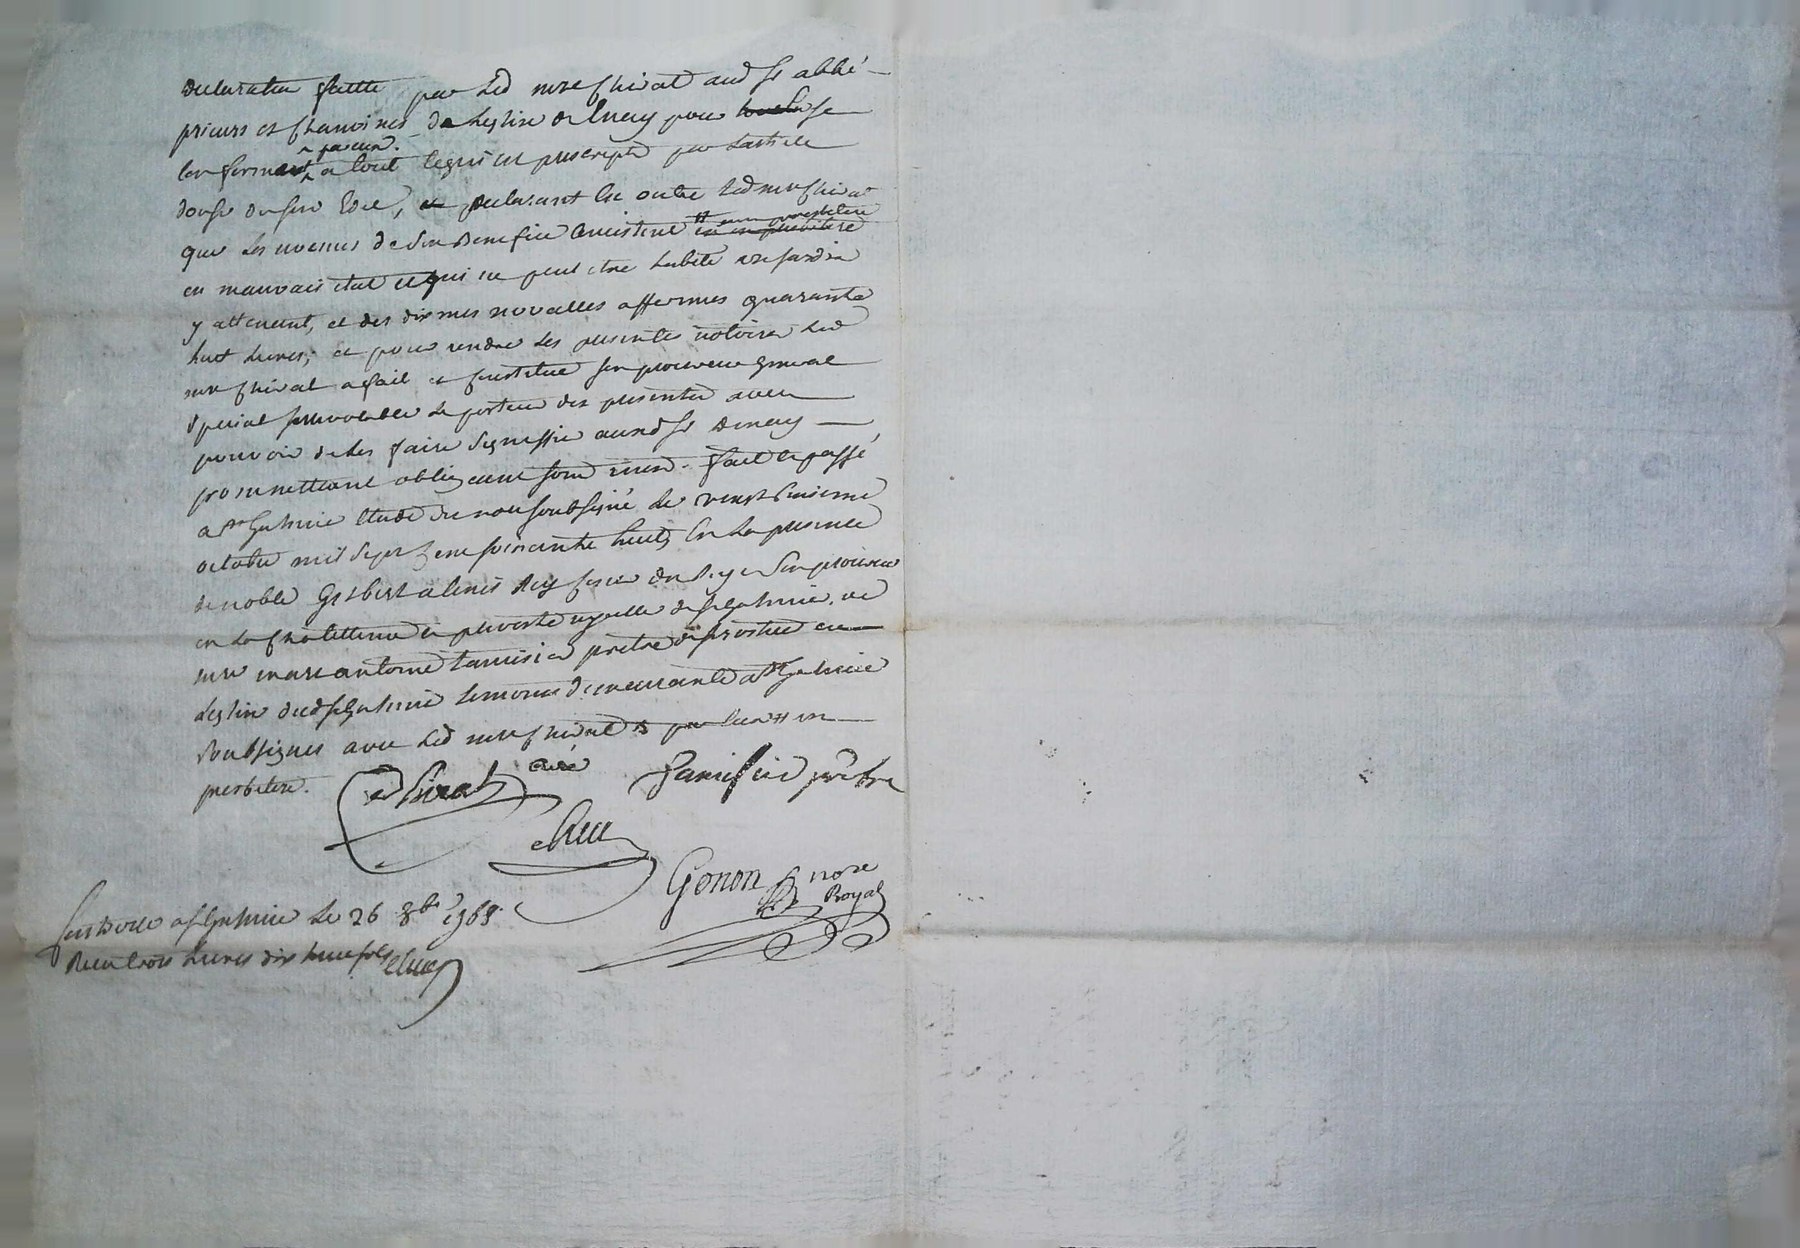 declaration faitte par led mre Chirat aud sr abbé
prieurs et Chanoines de Leglise de Lnay pour se
conformant a tout ce qui est prescript par Larticle
douze dusd Edit, declarant en outre led mre Chirat
que les revenus de son Benefice Consistent
en mauvais etat et qui ne peut etre habité un jardin
y attenant, et des dixmes novalles affermes quarante
huit Livres; et pour rendre les presente notoires led
mre Chirat a fait et Constitué son procureur general
special jrrevocable le porteur des presentes avec
pouvoir de les faire signiffier auxd srs
promettant obligeant soum renon. fait et passé
a st Galmier Etude du nore soubsigné le vingt
octobre mil sept Cent soixante huit, En la presence
de noble Gilbert alexis du Roy son procureur
en la Chatellenie et prevosté royalle de st Galmier, et
mre marc antoine tamisier pretre en
Leglise dud st Galmier temoins demeurants a st Galmier
soubsignes avec led mre Chirat
presbitere.
Chirat Curé
Tamisier prêtre
Gonon nore
Royal
Controllé a st Galmier Le 26 8bre 1768
Recu trois Livres dix